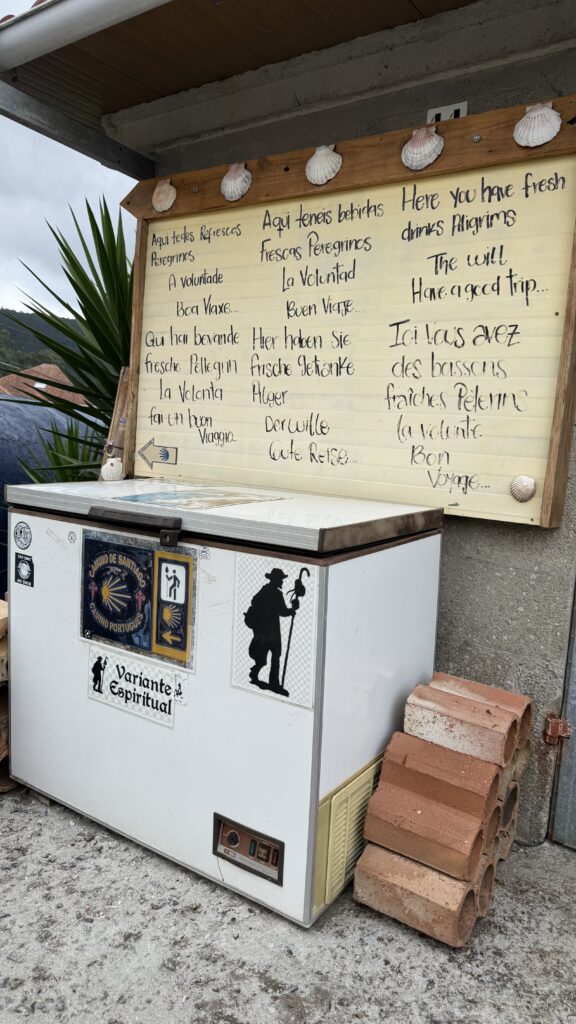 44
Aqui tedes Refrescos
Peregrinos
A voluntade
Boa Viaxe...
Aqui teneis bebidas
Frescas Peregrinos
La Voluntad
Buen Viaje...
Here you have fresh
drinks Piligrims
The will
Have a good trip...
Qui hai bevande
fresche Pellegrin
La Volonta
fai un buon
Viaggio...
Hier haben Sie
frische Getränke
Pilger
Der wille
Gute Reise...
Ici vous avez
des boissons
fraîches Pèlerins
la volonte
Bon
Voyage...
CAMINO DE SANTIAGO
CAMINO PORTUGUES
Variante
Espiritual